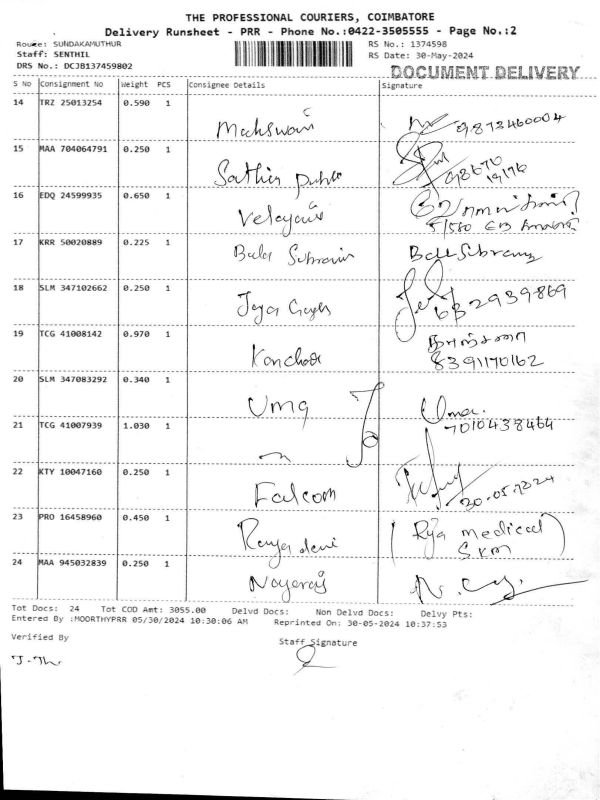 THE PROFESSIONAL COURIERS, COIMBATORE
Delivery Runsheet - PRR - Phone No.:0422-3505555 - Page No.:2
Route: SUNDAKAMUTHUR
Staff: SENTHIL
DRS No.: DCJB137459802
RS No.: 1374598
RS Date: 30-May-2024
DOCUMENT DELIVERY
S No Consignment No Weight PCS Consignee Details Signature
14 TRZ 25013254 0.590 1
9873460004
15 MAA 704064791 0.250 1
98670
16 EDQ 24599935 0.650 1
5/580
17 KRR 50020889 0.225 1 Bala
18 SLM 347102662 0.250 1 Jaya
632939869
19 TCG 41008142 0.970 1
8391170162
20 SLM 347083292 0.340 1 Uma Uma.
7010438464
21 TCG 41007939 1.030 1
22 KTY 10047160 0.250 1 Falcom
30-05-2024
23 PRO 16458960 0.450 1 (Rja medical)
SKM
24 MAA 945032839 0.250 1
Tot Docs: 24 Tot COD Amt: 3055.00 Delvd Docs: Non Delvd Docs: Delvy Pts:
Entered By :MOORTHYPRR 05/30/2024 10:30:06 AM Reprinted On: 30-05-2024 10:37:53
Verified By Staff Signature